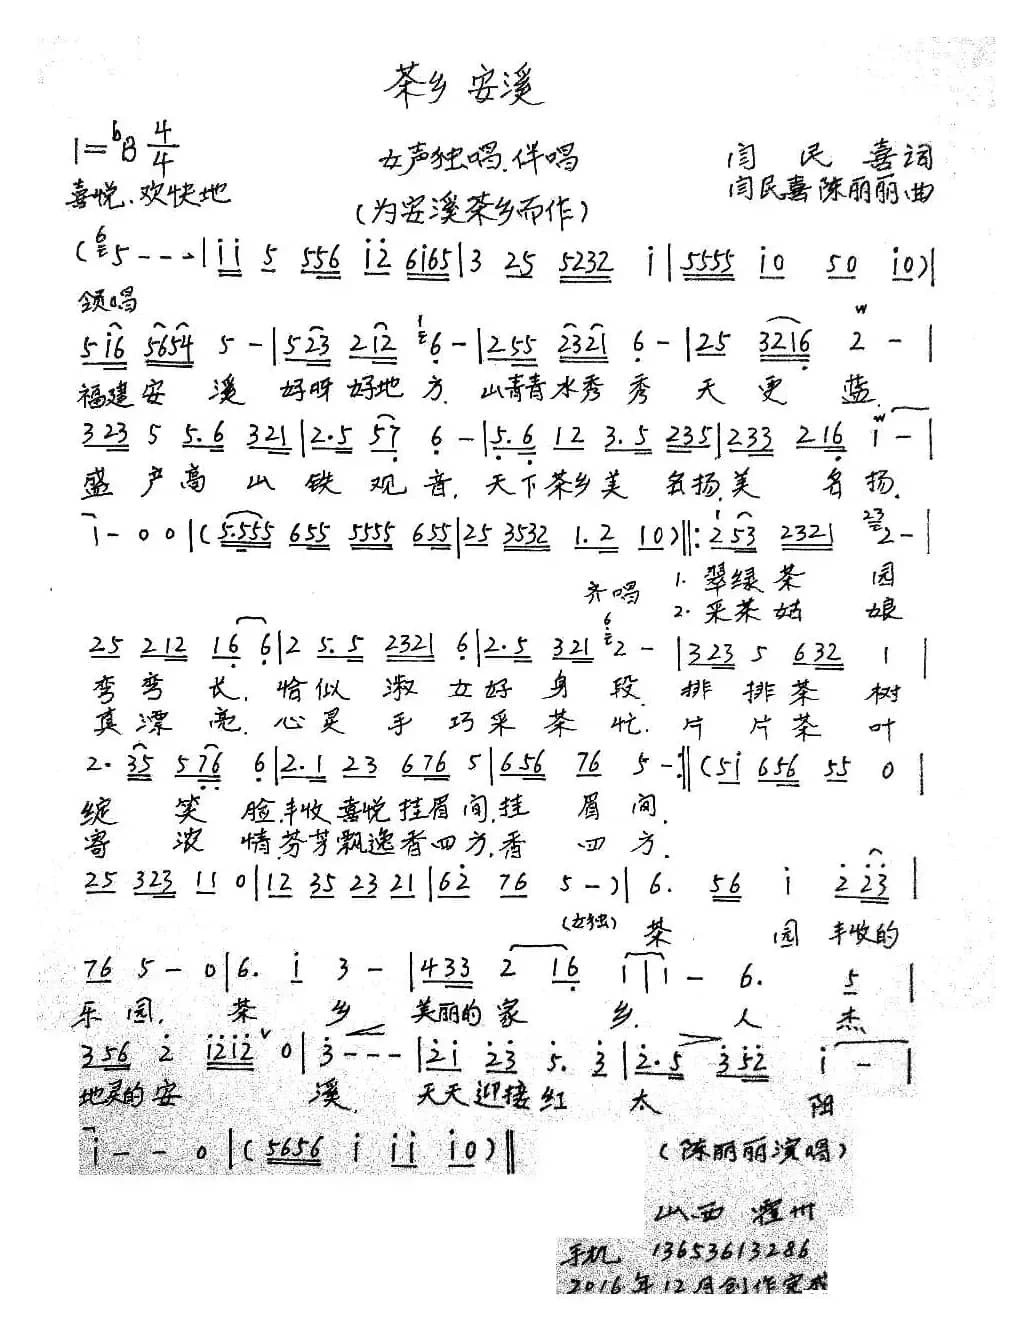 茶乡安溪
1=ᵇB 4/4 女声独唱.伴唱 闫民喜词
喜悦、欢快地 (为安溪茶乡而作) 闫民喜 陈丽丽曲
(5 - - - | i i 5 556 i 2 6i65 | 3 25 5232 i | 5555 i0 50 i0) |
领唱
5i6 5654 5 - | 523 212 6 - | 255 2321 6 - | 25 3216 2 - |
福建安溪 好呀好地方. 山青青水秀秀 天更蓝.
323 5 5.6 321 | 2.5 57 6 - | 5.6 12 3.5 235 | 233 216 i - |
盛产高山铁观音. 天下茶乡美名扬.美名扬.
i - 0 0 | (5.555 655 5555 655 | 25 3532 1.2 10) ‖: 253 2321 2 - |
齐唱 1. 翠绿茶园
2. 采茶姑娘
25 212 16 6 | 2 5.5 2321 6 | 2.5 321 2 - | 323 5 632 1 |
弯弯长. 恰似淑女好身段. 排排茶树
真漂亮. 心灵手巧采茶忙. 片片茶叶
2. 35 576 6 | 2.1 23 676 5 | 656 76 5 - :‖ (5i 656 55 0
绽笑脸.丰收喜悦挂眉间.挂眉间.
寄浓情.芬芳飘逸香四方.香四方.
25 323 11 0 | 12 35 23 21 | 62 76 5 -) | 6. 56 i 223 |
(女独) 茶园丰收的
76 5 - 0 | 6. i 3 - | 433 2 16 | i i - 6. 5 |
乐园. 茶乡 美丽的家乡. 人杰
356 2 i2i2 0 | 3 - - - | 2i 23 5. 3 | 2.5 352 i - |
地灵的安溪. 天天迎接红太阳
i - - 0 | (5656 i ii i0) ‖
(陈丽丽演唱)
山西 霍州
手机 13653613286
2016年12月创作完成